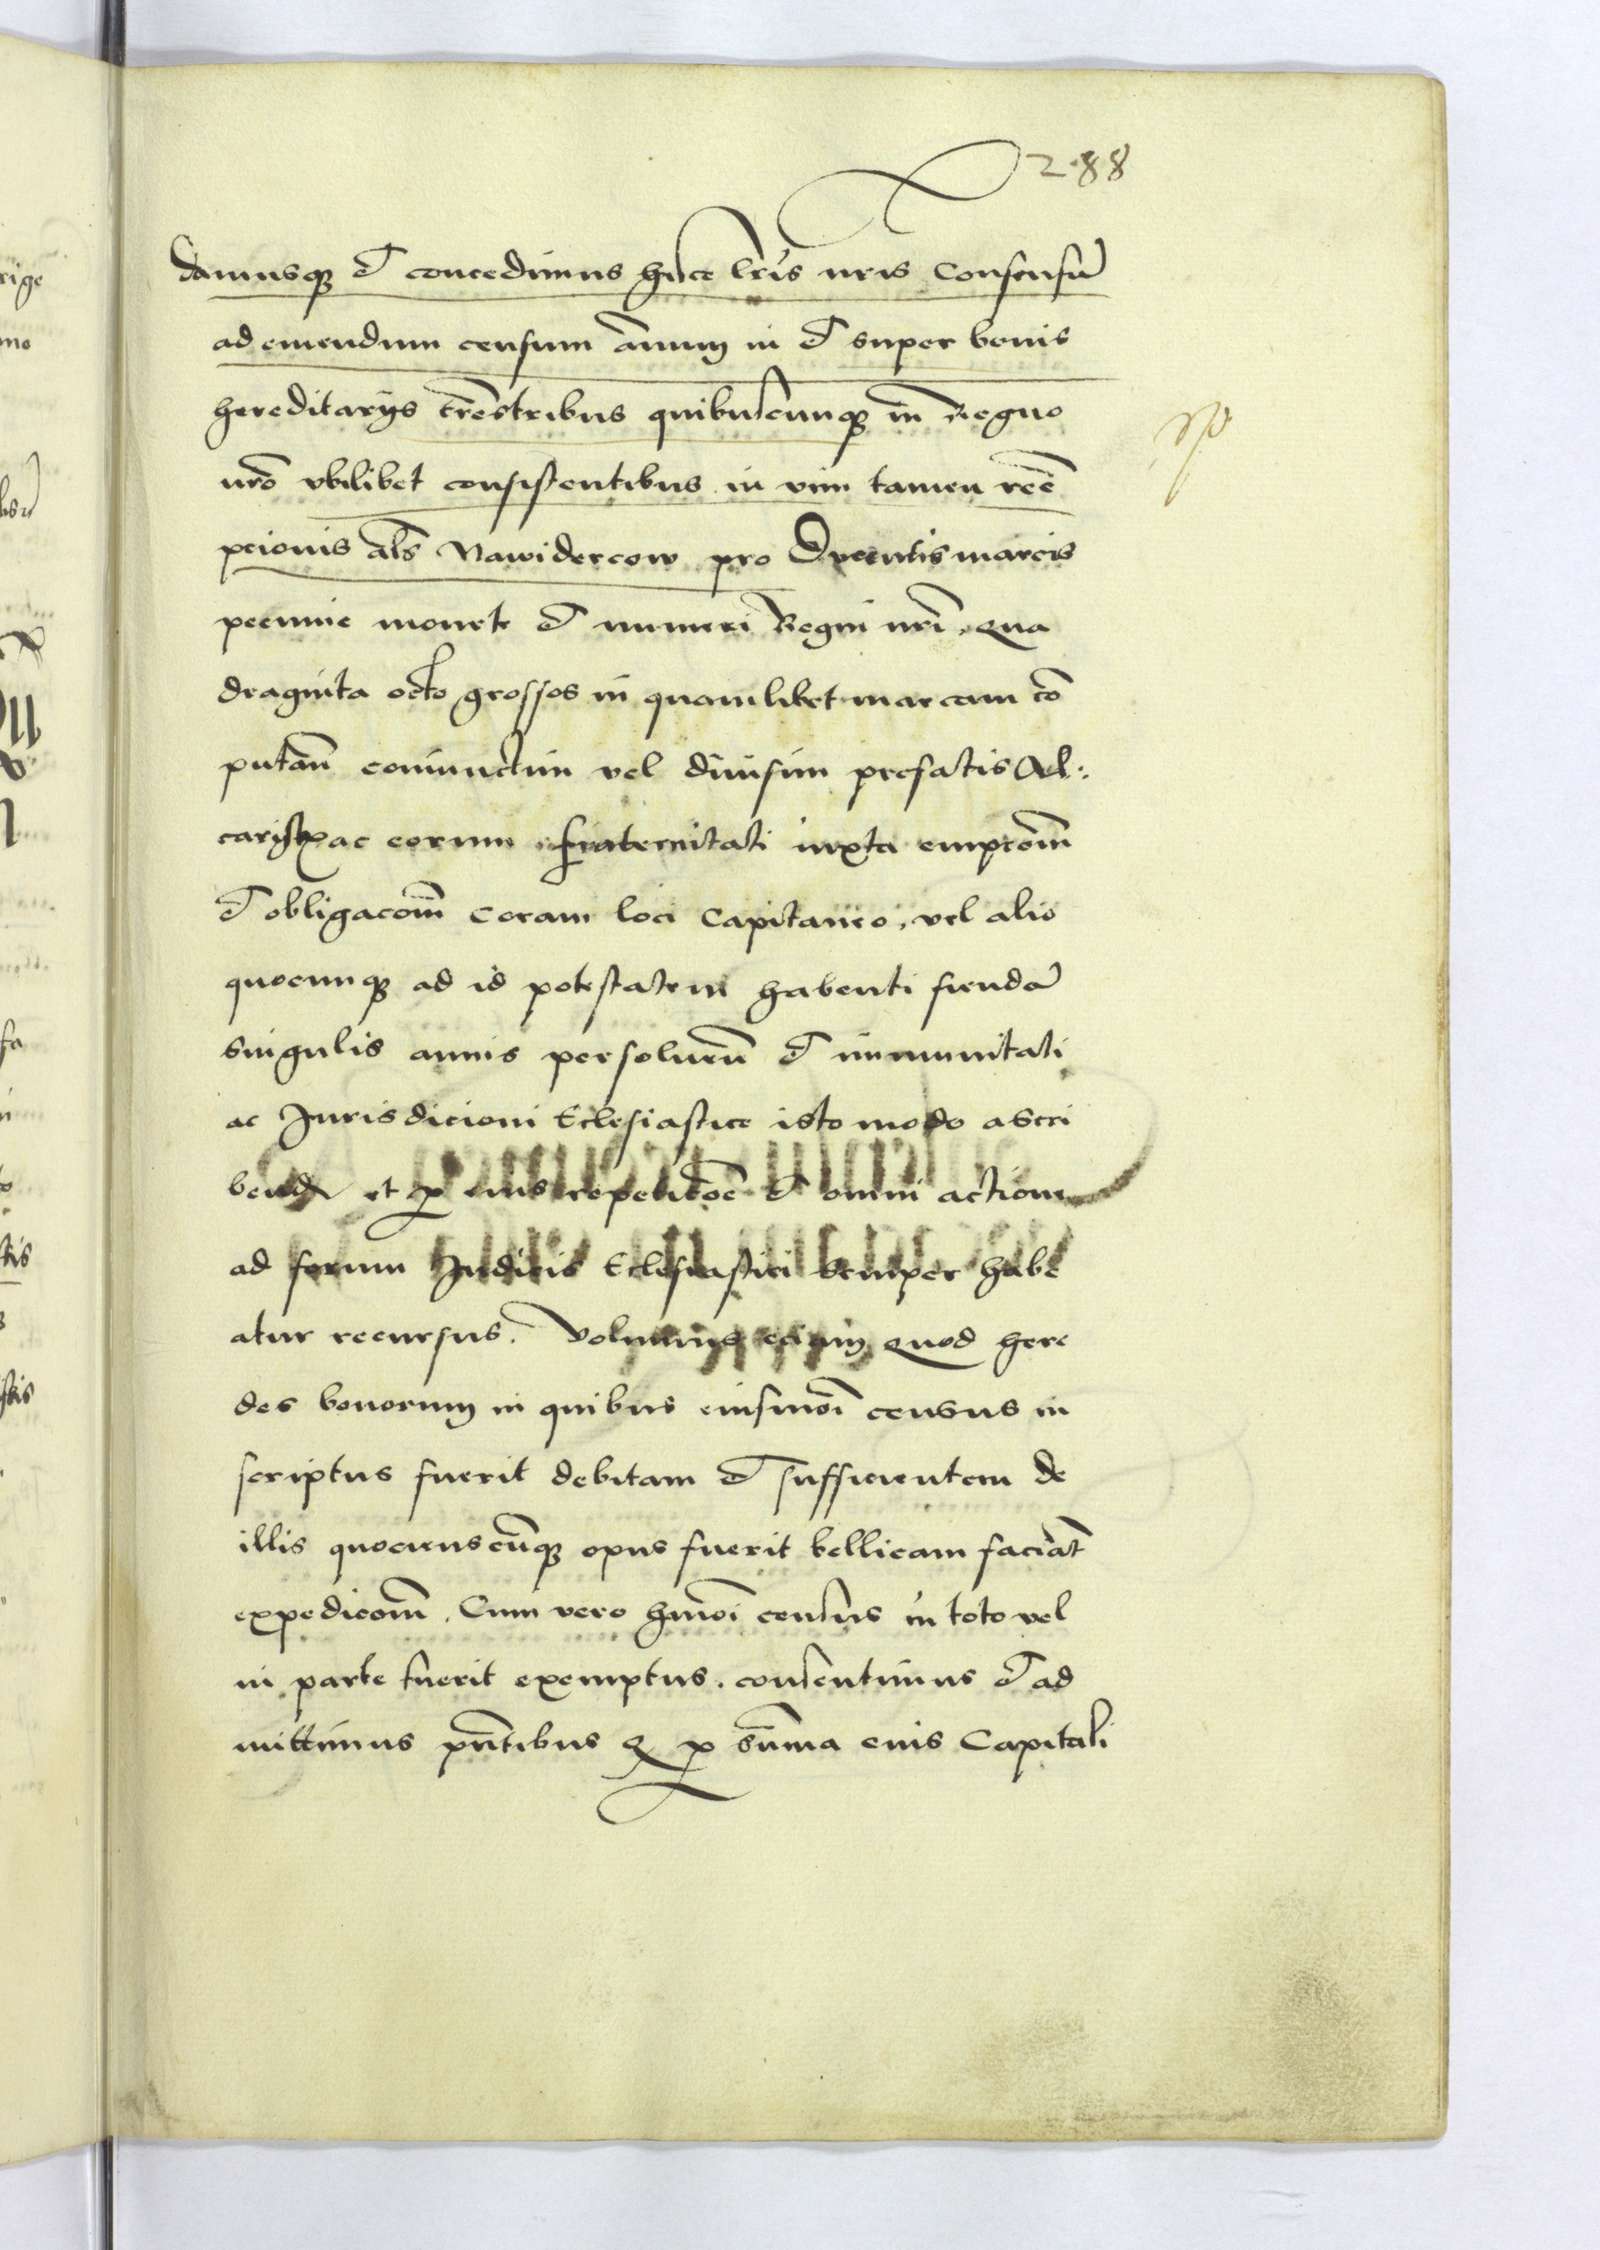 288
damusq₃ et concedimus hijce lr̃is nr̃is Consensũ
ad emendum censum ãnuum in et super bonis
hereditarijs tr̃estribus quibuscunq₃ in Regno
nr̃o vbilibet consistentibus in vim tamen reẽ
pcionis als̃ Nawidercow pro Ducentis marcis
pecunie monete et numeri Regni nr̃i, Qua
draginta octo grossos in quamlibet marcam cõ
putañ coniunctim vel diuisim prefatis
ac eorum fraternitati iuxta empcom̃
et obligacom̃ coram loci Capitaneo, vel alio
quocunq₃ ad id potestatem habenti fiendã
Singulis annis persoluenũ et immunitati
ac Jurisdicioni Eclesiastice isto modo ascri
bend et p eius repeticõe et omni actione
ad forum Judicis Eclesiastici semper habe
atur recursus. Volumus eciam Quod here
des bonorum in quibus eiusmõi census in
scriptus fuerit debitam et sufficientem de
illis quocienscũq₃ opus fuerit bellicam faciãt
expedicom̃. Cum vero hmõi census in toto vel
in parte fuerit exemptus. consentimus et ad
mittimus pñtibus Q p sũma eius Capitali